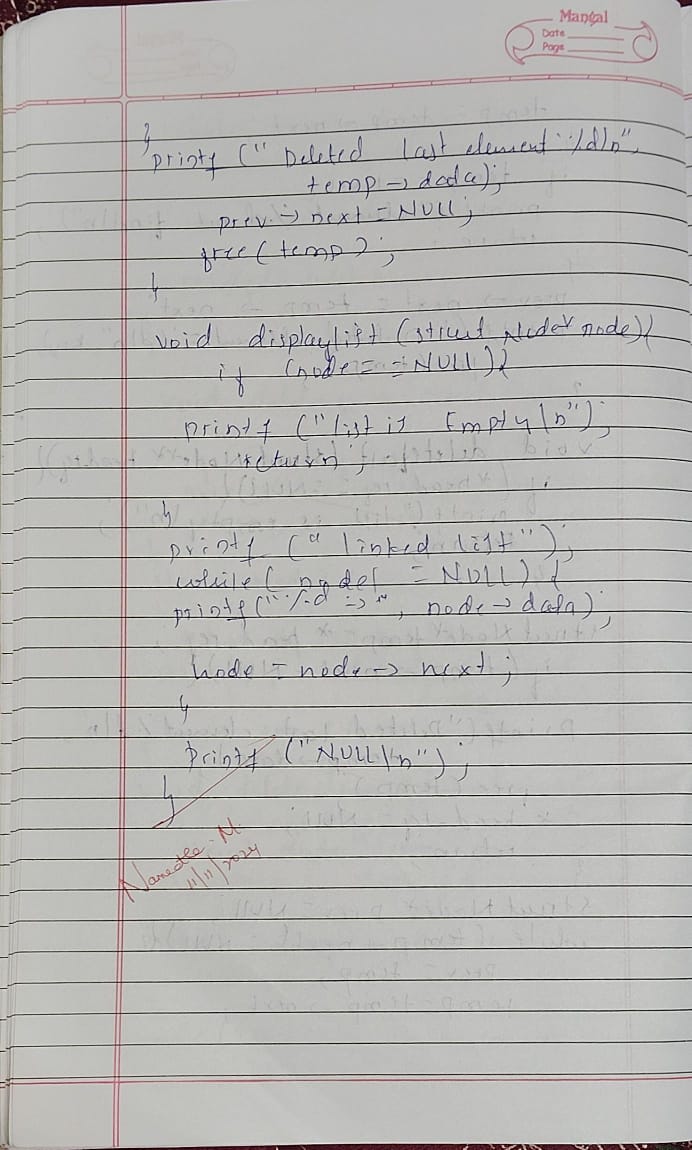 Mangal
Date
Page
}
printf (" Deleted last element %d\n",
temp -> data);
prev -> next = NULL;
free (temp);
}
void displaylist (struct Node* node){
if (node = = NULL){
printf ("list is Empty \n");
return;
}
printf (" linked list ");
while ( node! = NULL) {
printf(" %d ->", node -> data);
node = node -> next;
}
printf ("NULL\n");
}
11/11/2024